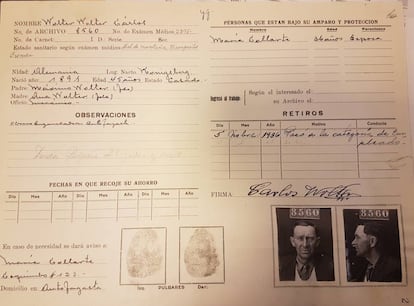 NOMBRE Wolter Wolter Carlos
No. de ARCHIVO 8560 No. de Examen Médico
No. de Carnet: 1 D. Serie
Estado sanitario según examen médico
Nidad: Alemania Lug. Nacto
Nació año 1891 Edad 45 años Estado Casado
Padre Maximo Wolter (fdo)
Madre Ana Wolter (fda)
Oficio
OBSERVACIONES
Antofagasta
FECHAS EN QUE RECOJE SU AHORRO
Día Mes Año Día Mes Año Día Mes Año
En caso de necesidad se dará aviso a
María Collarte
Coquimbo 822.-
Domicilio en Antofagasta
Izq. PULGARES Der.
PERSONAS QUE ESTAN BAJO SU AMPARO Y PROTECCION
Nombre Edad Parentesco
María Collarte 36 años Esposa
Ingresó al trabajo
Según el interesado el
su Archivo el
RETIROS
Día Mes Año Motivo Conducta
5 Nobre 1936 Pasó a la categoría de Em
pleado.
FIRMA: Carlos Wolter
8560
8560